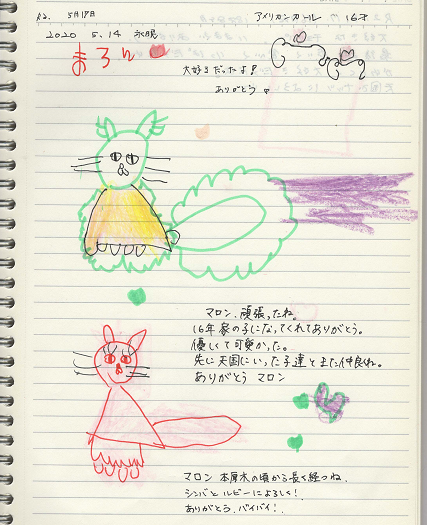 R2. 5月17日 アメリカンカール 16才
2020 5.14 永眠
まろん
大好きだったよ!
ありがとう
マロン、頑張ったね。
16年家の子になってくれてありがとう。
優しくて可愛かった。
先に天国にいった子達とまた仲良くね。
ありがとう マロン
マロン 本厚木の頃から長く経つね。
シンバとルビーによろしく!
ありがとう、バイバイ!